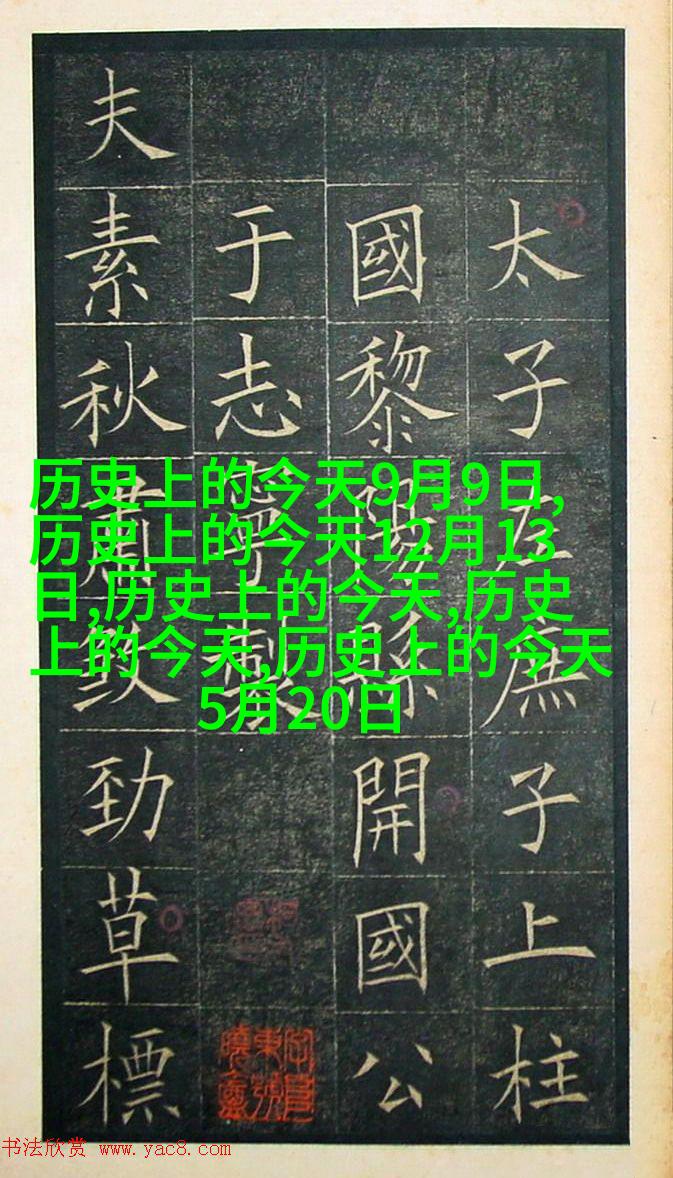 太子左庶子上柱
國黎陽縣開國公
于志寧製
夫素秋肅煞勁草標
历史上的今天9月9日,
历史上的今天12月13
日,历史上的今天,历史
上的今天,历史上的今天
5月20日
书法欣赏 www.yac8.com